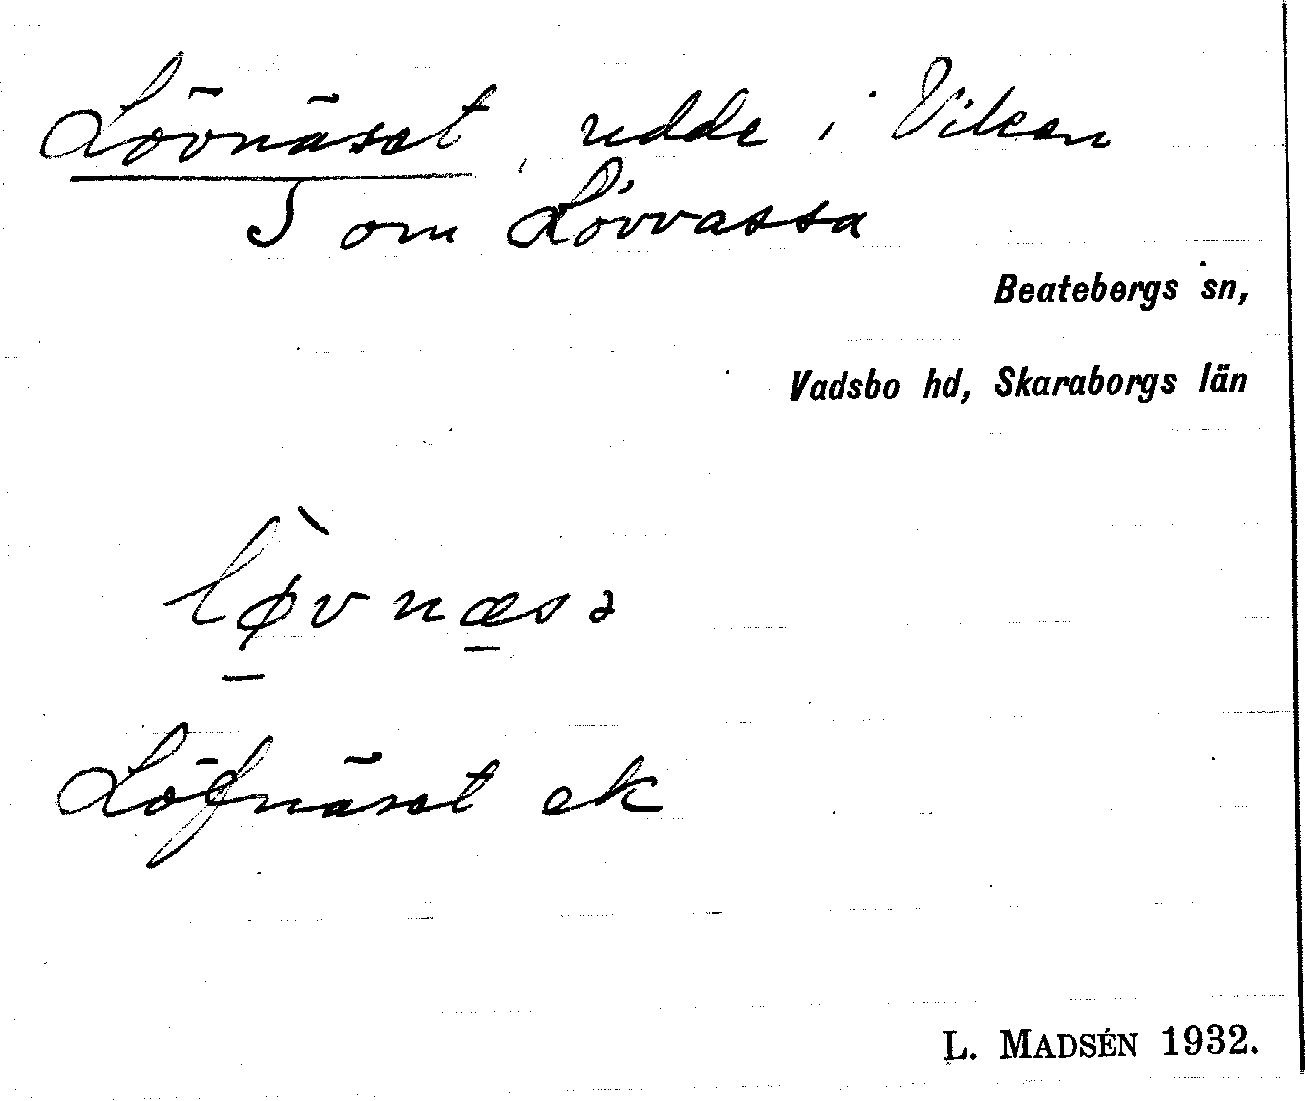 Lövnäset, udde i Viken
S om Lövvassa
Beatebergs sn,
Vadsbo hd, Skaraborgs län
lø̀vnæsə
Löfnäset ek
L. MADSÉN 1932.